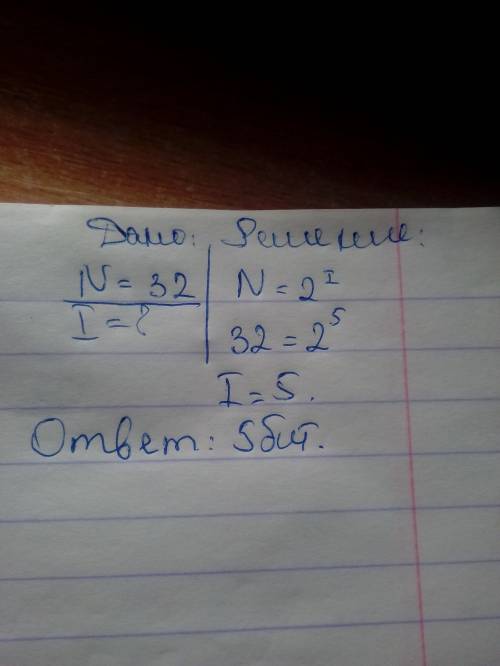 Дано: Решение:
N = 32 N = 2^I
I = ? 32 = 2^5
I = 5.
Ответ: 5 бит.